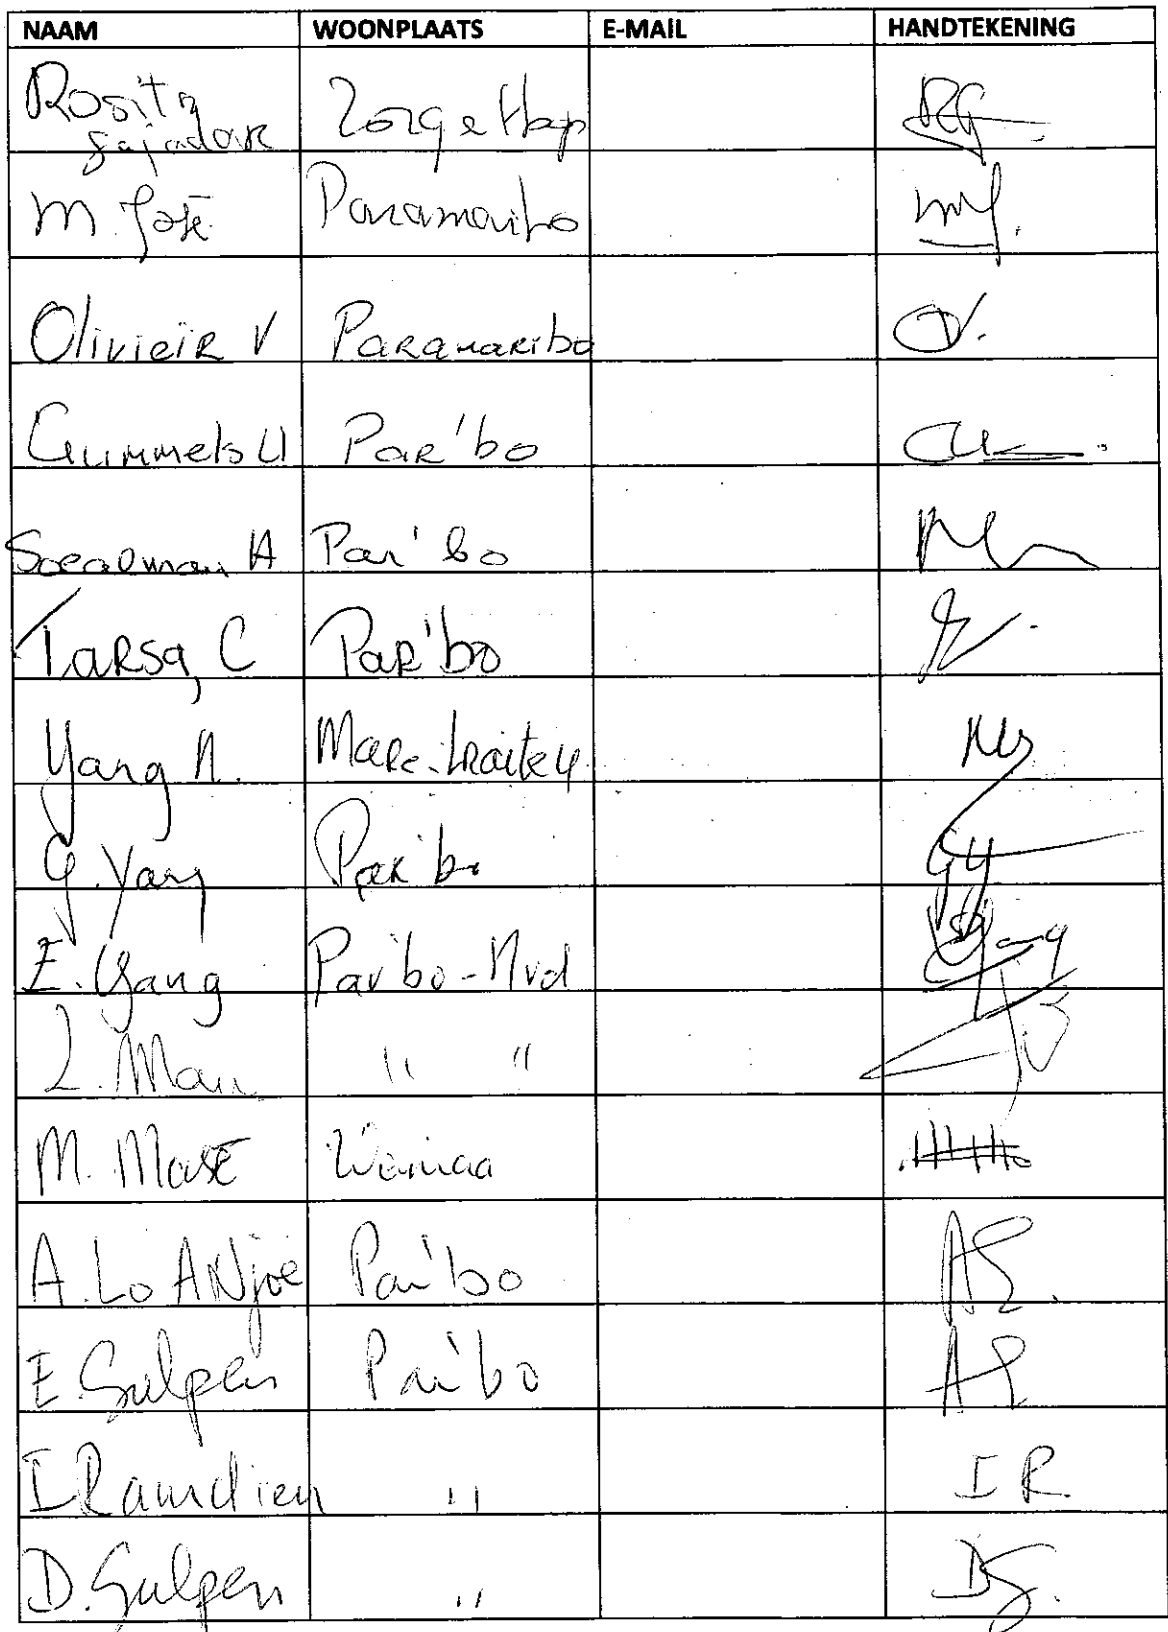 NAAM WOONPLAATS E-MAIL HANDTEKENING
Rosita Zorg e Hop RG
Gajadar
M. José Paramaribo
Olivieir V Paramaribo OV.
Gummels U Par'bo
Soealman A Par'bo
Tarsa, C Par'bo
Yang N.
G. Yang Par'bo GY
E. Yang Par'bo-Nrd Yang
L. Man " "
M. Wanica
A. Lo ANjoe Par'bo AL.
E. Gulpen Par'bo
I Ramdien " I R.
D. Gulpen " DG.